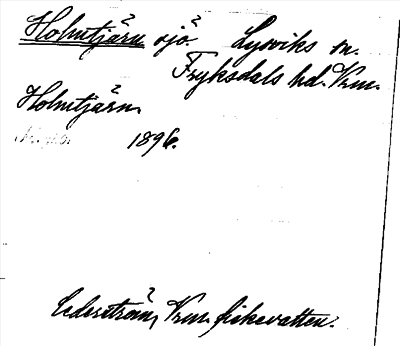 Holmtjärn sjö. Lysviks sn.
Fryksdals hd. Vrm.
Holmtjärn
1896.
Cederström, Vrm. fiskevatten.